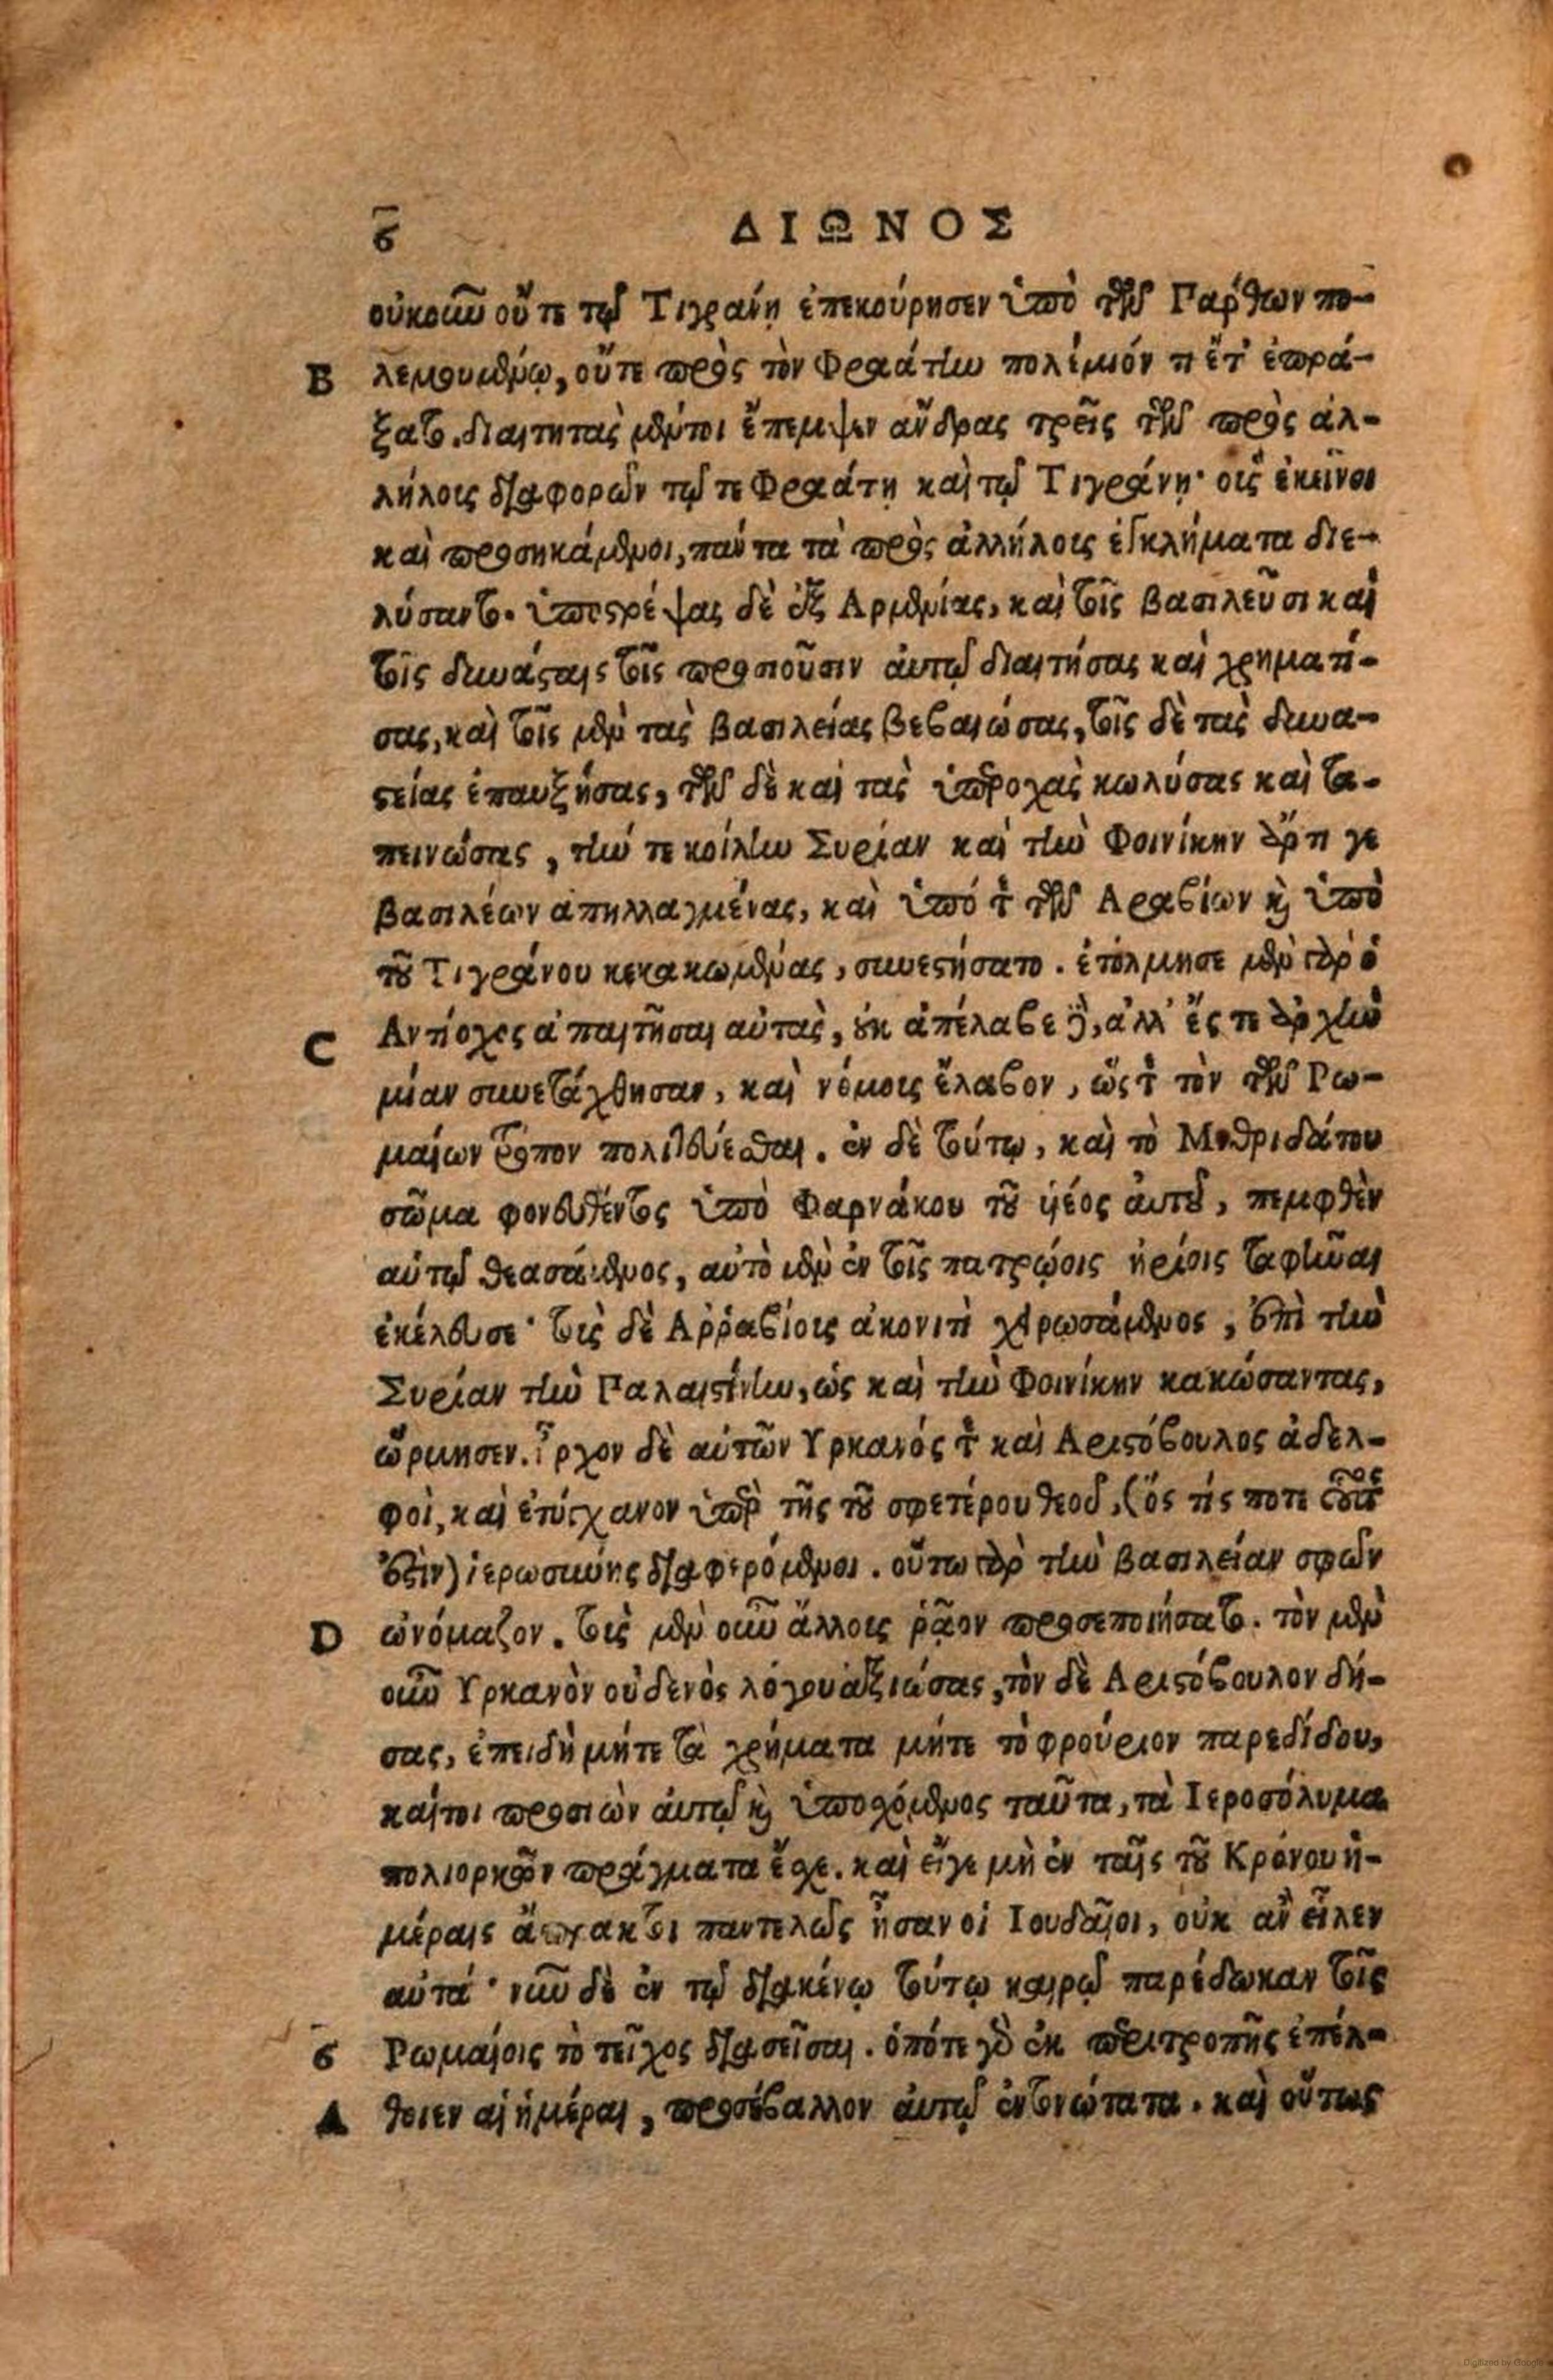 ϛ ΔΙΩΝΟΣ
οὐκοῦν οὔτε τῷ Τιγράνῃ ἐπεκούρησεν ὑπὸ τῶν Πάρθων πο-
B λεμουμένῳ, οὔτε πρὸς τὸν Φραάτην πολέμιόν τι ἔτ' ἐπρά-
ξατο. διαιτητὰς μέντοι ἔπεμψεν ἄνδρας τρεῖς τῶν πρὸς ἀλ-
λήλοις διαφορῶν τῷ τε Φραάτῃ καὶ τῷ Τιγράνῃ· οἷς ἐκεῖνοι
καὶ προσηκάμενοι, πάντα τὰ πρὸς ἀλλήλοις ἐγκλήματα διε-
λύσαντο. ὑποστρέψας δὲ ἐξ Αρμενίας, καὶ τοῖς βασιλεῦσι καὶ
τοῖς δυνάσταις τοῖς προσιοῦσιν αὐτῷ διαιτήσας καὶ χρηματί-
σας, καὶ τοῖς μὲν τὰς βασιλείας βεβαιώσας, τοῖς δὲ τὰς δυνα-
στείας ἐπαυξήσας, τῶν δὲ καὶ τὰς ὑπεροχὰς κωλύσας καὶ τα-
πεινώσας, τήν τε κοίλην Συρίαν καὶ τὴν Φοινίκην ἄρτι γε
βασιλέων ἀπηλλαγμένας, καὶ ὑπό τε τῶν Αραβίων καὶ ὑπὸ
τοῦ Τιγράνου κεκακωμένας, συνεστήσατο. ἐτόλμησε μὲν γὰρ ὁ
C Αντίοχος ἀπαιτῆσαι αὐτὰς, οὐκ ἀπέλαβε δὲ, ἀλλ' ἔς τε ἀρχὴν
μίαν συνετάχθησαν, καὶ νόμοις ἔλαβον, ὥστε τὸν τῶν Ρω-
μαίων τρόπον πολιτεύεσθαι. ἐν δὲ τούτῳ, καὶ τὸ Μιθριδάτου
σῶμα φονευθέντος ὑπὸ Φαρνάκου τοῦ υἱέος αὐτοῦ, πεμφθὲν
αὐτῷ θεασάμενος, αὐτὸ μὲν ἐν τοῖς πατρῴοις ἠρίοις ταφῆναι
ἐκέλευσε· τοὺς δὲ Αῤῥαβίοις ἀκονιτὶ χειρωσάμενος, ἐπὶ τὴν
Συρίαν τὴν Παλαιστίνην, ὡς καὶ τὴν Φοινίκην κακώσαντας,
ὥρμησεν. ἦρχον δὲ αὐτῶν Υρκανός τε καὶ Αριστόβουλος ἀδελ-
φοὶ, καὶ ἐτύγχανον ὑπὲρ τῆς τοῦ σφετέρου θεοῦ, (ὅς τίς ποτε οὗτός
ἐστιν) ἱερωσύνης διαφερόμενοι. οὕτω γὰρ τὴν βασιλείαν σφῶν
D ὠνόμαζον. τοὺς μὲν οὖν ἄλλοις ῥᾷον προσεποιήσατο. τὸν μὲν
οὖν Υρκανὸν οὐδενὸς λόγου ἀξιώσας, τὸν δὲ Αριστόβουλον δή-
σας, ἐπειδὴ μήτε τὰ χρήματα μήτε τὸ φρούριον παρεδίδου,
καίτοι προσιὼν αὐτῷ καὶ ὑποσχόμενος ταῦτα, τὰ Ιεροσόλυμα
πολιορκῶν πράγματα ἔσχε. καὶ εἴγε μὴ ἐν ταῖς τοῦ Κρόνου ἡ-
μέραις ἄπρακτοι παντελῶς ἦσαν οἱ Ιουδαῖοι, οὐκ ἂν εἷλεν
αὐτά· νῦν δὲ ἐν τῷ διακένῳ τούτῳ καιρῷ παρέδωκαν τοῖς
ϛ Ρωμαίοις τὸ τεῖχος διασεῖσαι. ὁπότε γὰρ ἐκ περιτροπῆς ἐπέλ-
A θοιεν αἱ ἡμέραι, προσέβαλλον αὐτῷ ἐντονώτατα. καὶ οὕτως
Digitized by Google